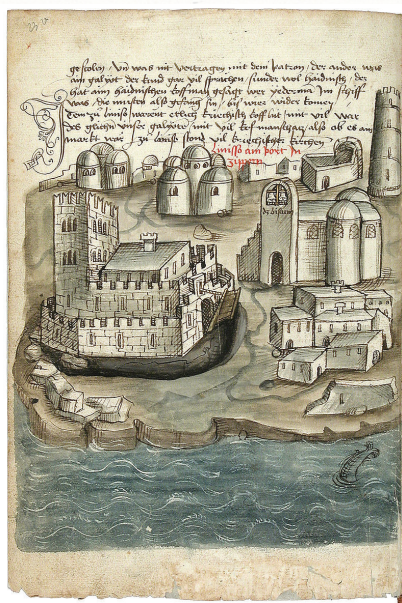 23 v
gestolen / Vnd was nit vertragen mit dem patron / der ander was
am galyot der kund gar vil sprachen / sunder wol haidnisch / der
hat aim haidnischen koffman gesagt wer yederman Im schiff
was / die musten also gefang sin / bis wier wider komen
Jtem zu limiso warent etlich kriechisch koff lut mit vil war
des glichen unser galyote mit vil kofmanschatz / also ob es am
markt wär / zu limiso stond vil kriechischer kirchen
limisso ain port In
zippern
dz bistum